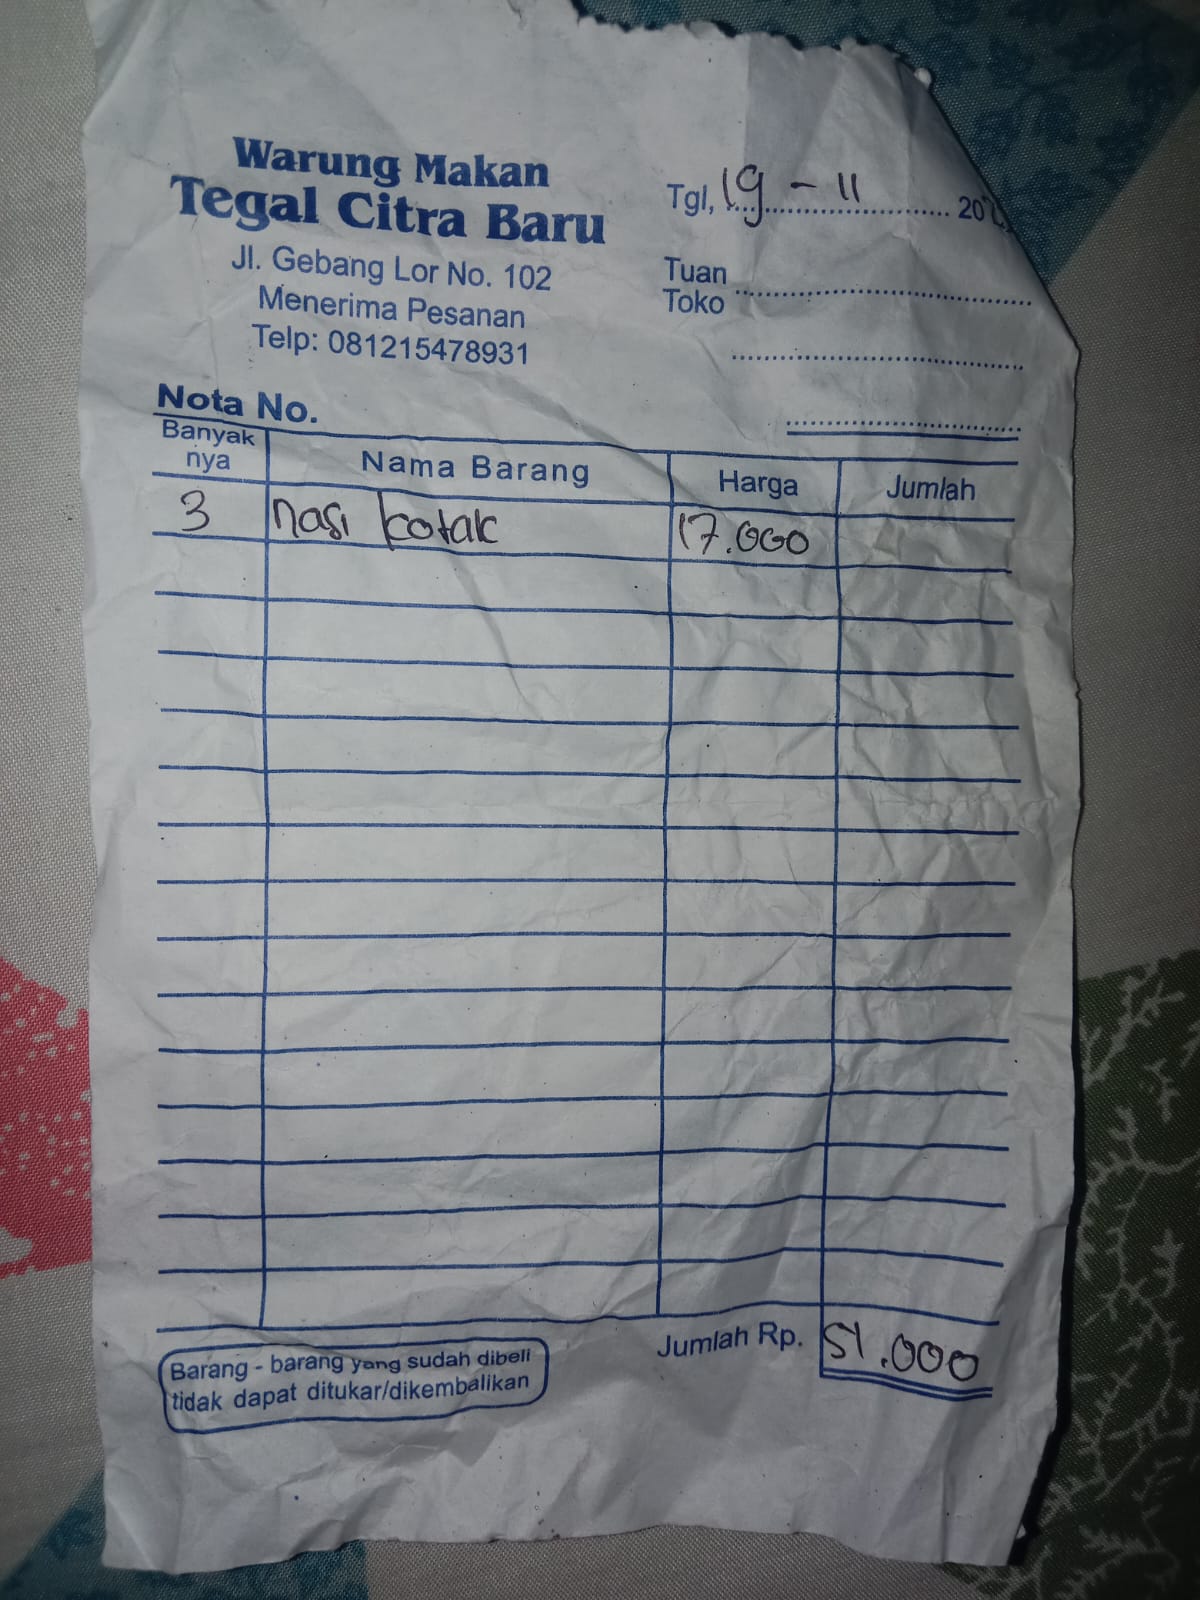 Warung Makan
Tegal Citra Baru
Jl. Gebang Lor No. 102
Menerima Pesanan
Telp: 081215478931
Tgl, 19 - 11 20
Tuan
Toko
Nota No.
Banyak nya Nama Barang Harga Jumlah
3 nasi kotak 17.000
Jumlah Rp. 51.000
Barang - barang yang sudah dibeli
tidak dapat ditukar/dikembalikan